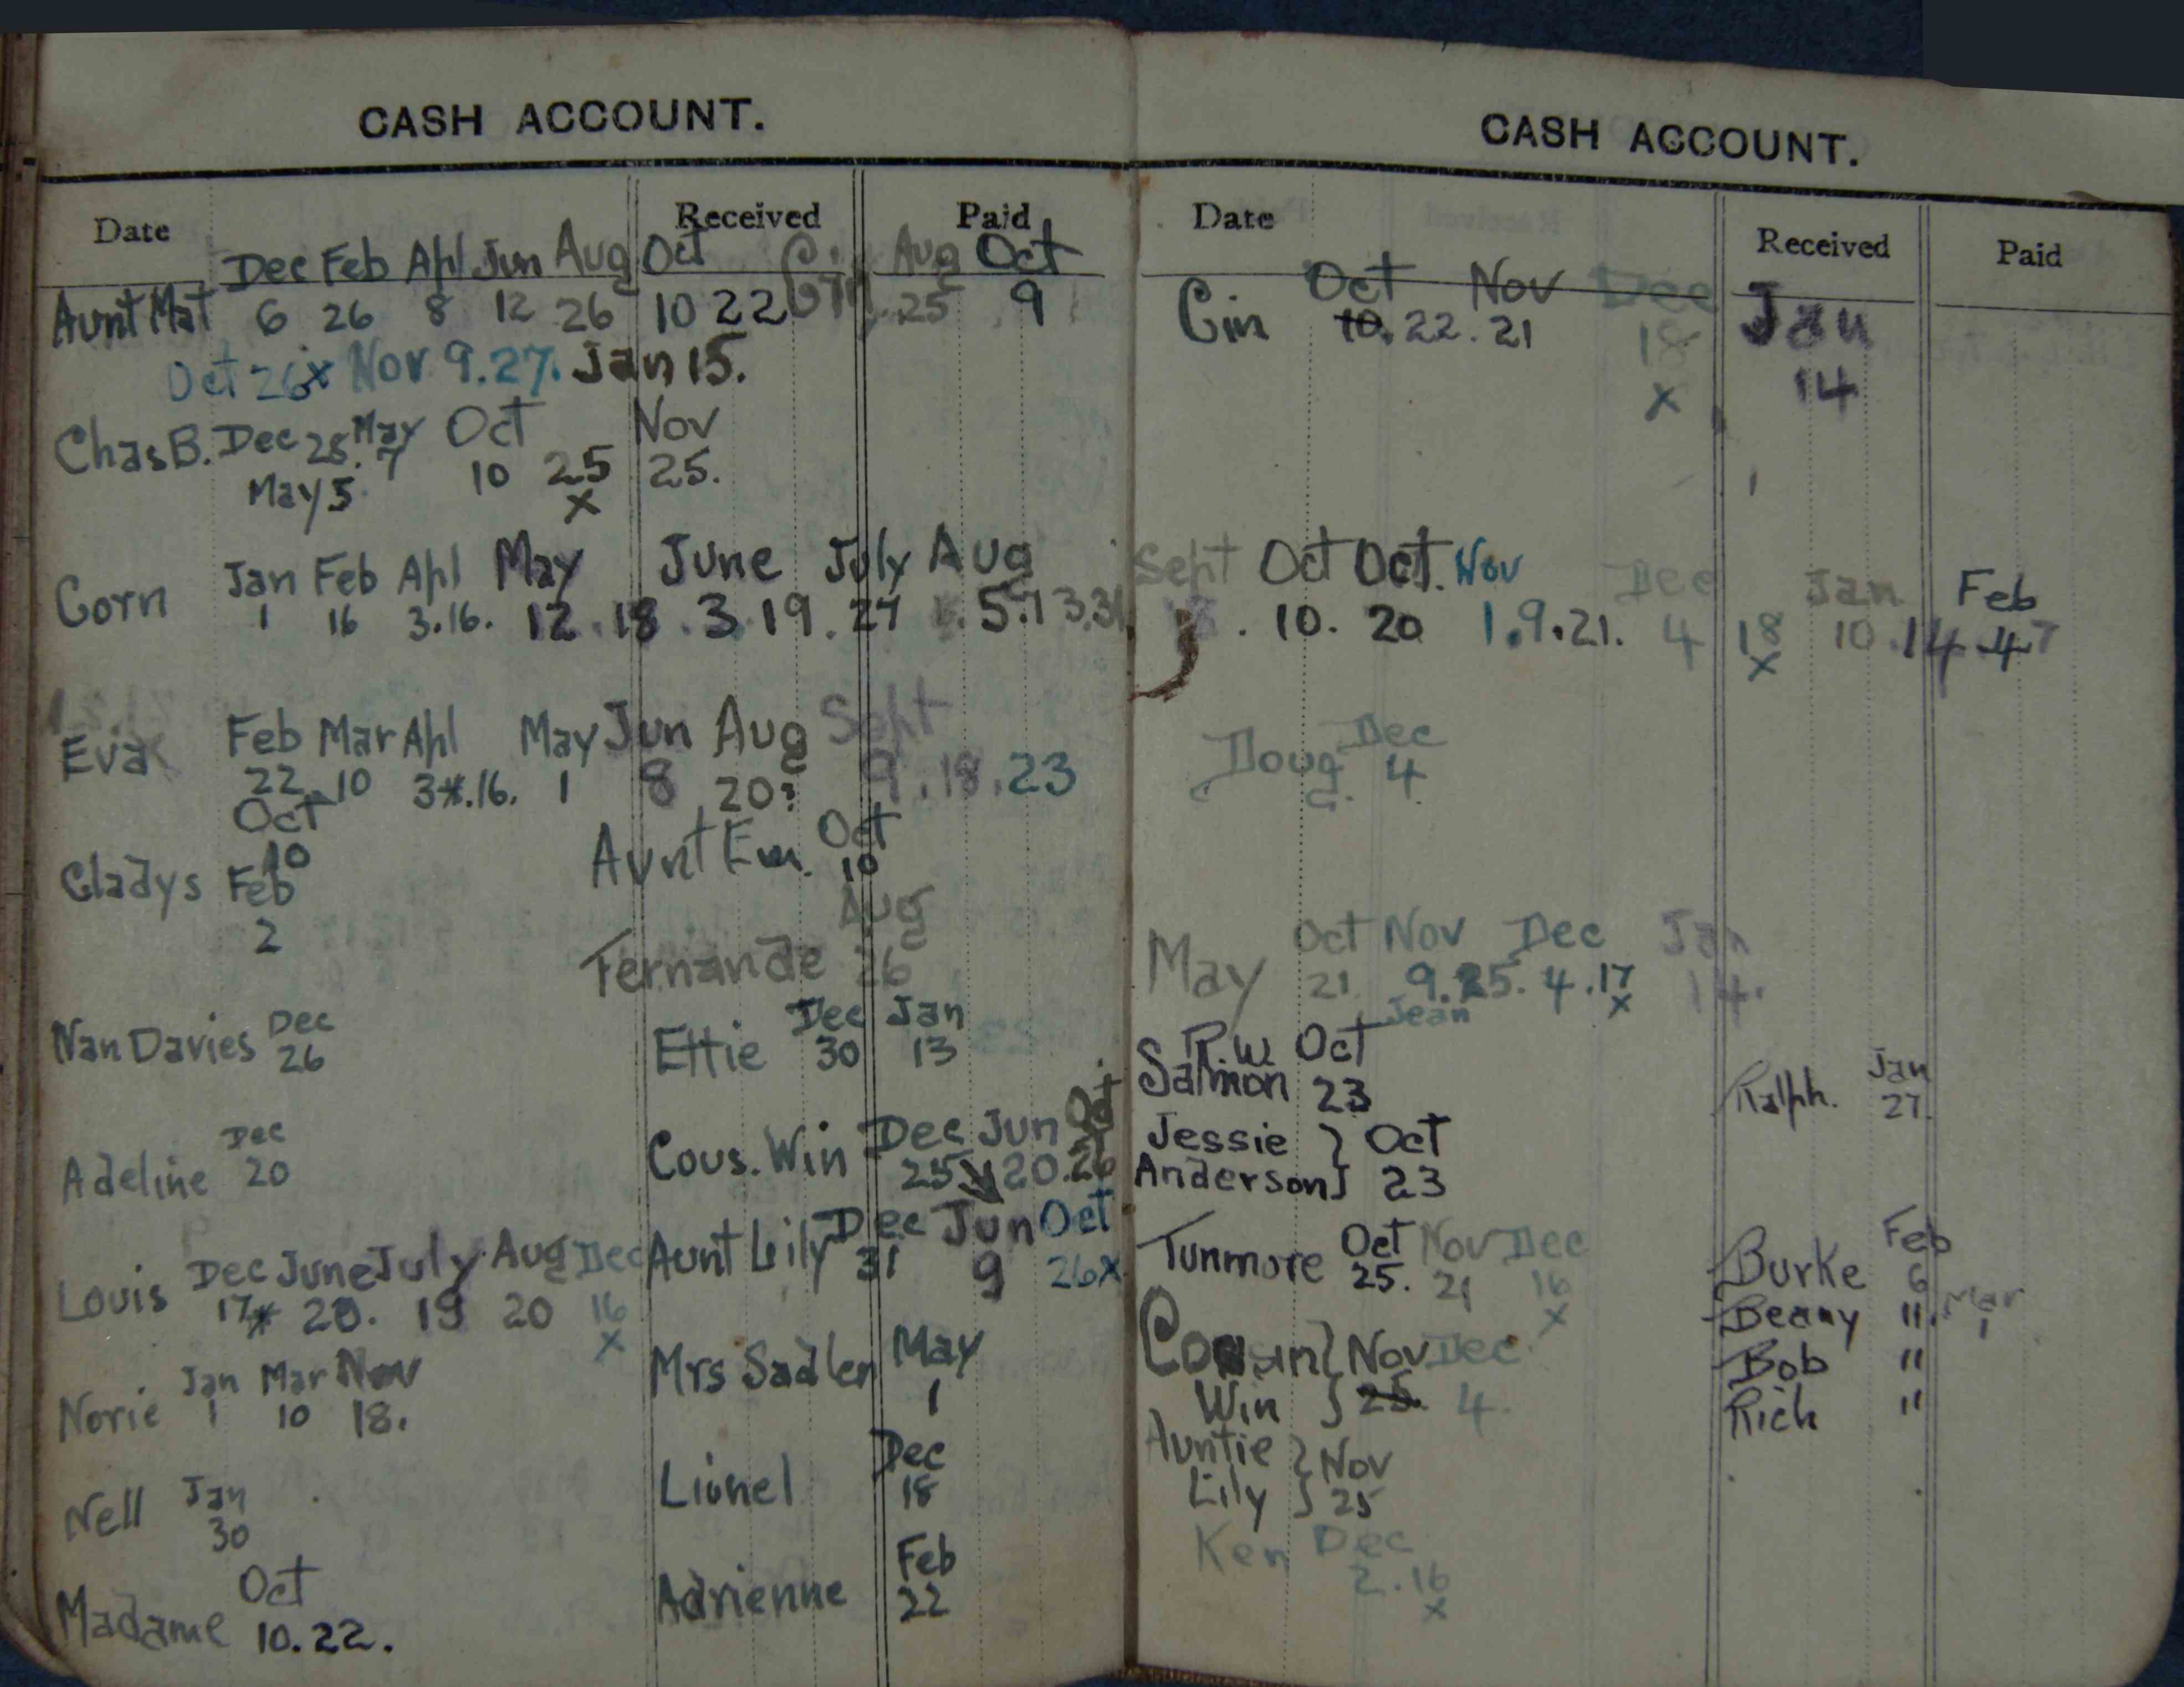 CASH ACCOUNT.
Date Received Paid
Dec Feb Apl Jun Aug Oct Cin Aug Oct
Aunt Mat 6 26 8 12 26 10 22 25 9
Oct 26x Nov 9.27. Jan 15.
Chas B. Dec 28. May 7 Oct Nov
May 5 10 25 25.
x
Jan Feb Apl May June July Aug
Corn 1 16 3.16. 12.18.3.19.27 5.13.31
Feb Mar Apl May Jun Aug Sept
Eva 22.10 3*.16. 1 8 20? 9.18.23
Oct
10
Aunt Em. Oct
10
Gladys Feb
2
Aug
Fernande 26
Nan Davies Dec
26
Ettie Dec Jan
30 13
Adeline Dec
20
Cous. Win Dec Jun Oct
25 20.26
Louis Dec June July Aug Dec
17* 20. 19 20 16
x
Aunt Lily Dec Jun Oct
31 9 26x
Norie Jan Mar Nov
1 10 18.
Mrs Sadler May
1
Nell Jan
30
Lionel Dec
18
Madame Oct
10.22.
Adrienne Feb
22
CASH ACCOUNT.
Date Received Paid
Oct Nov Dec Jan
Cin 10.22.21 18 14
x
Sept Oct Oct. Nov Dec Jan Feb
18. 10. 20 1.9.21. 4 18 10.14.4 7
x
Doug. Dec
4.
Oct Nov Dec Jan
May 21. 9.25. 4.17 14.
Jean x
R.W. Oct
Salmon 23
Ralph. Jan
27.
Jessie } Oct
Anderson } 23
Tunmore Oct Nov Dec
25. 21 16
x
Burke Feb
6
Beany ". Mar
1
Bob "
Rich "
Cousin } Nov Dec
Win } 25. 4.
Auntie } Nov
Lily } 25
Ken Dec
2.16
x